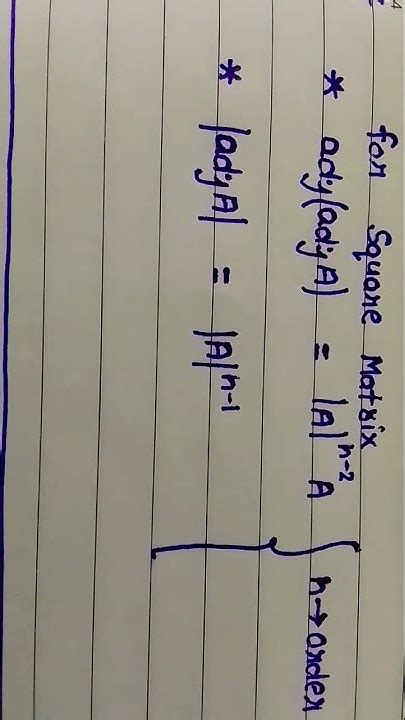 for Square Matrix
* adj(adjA) = |A|ⁿ⁻² A
* |adjA| = |A|ⁿ⁻¹
n→order